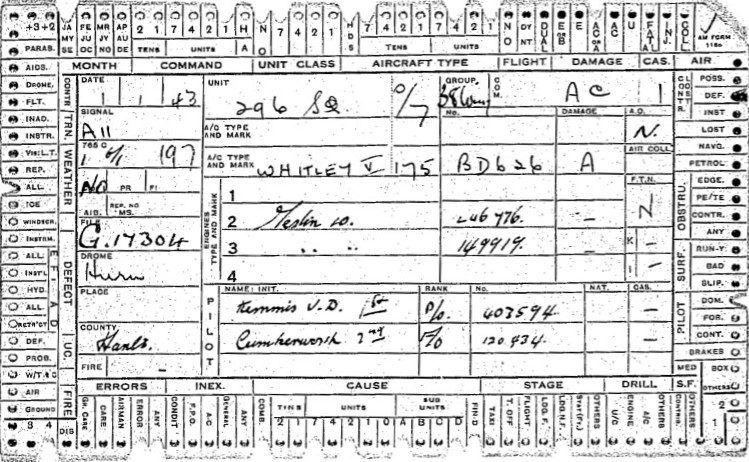 +3 +2 JA FE MR AP H N D N DY DUAL EE AC A U FATAL INJ. COLL AM FORM
MY JU JY AU 2 1 7 4 2 1 A O 7 4 2 1 S 7 4 2 1 7 4 2 1 O NT OR B OR A C 1180
PARAS. SE OC NO DE TENS UNITS UNITS TENS UNITS
AIDS. MONTH COMMAND UNIT CLASS AIRCRAFT TYPE FLIGHT DAMAGE CAS. AIR
DROME. CONTR. DATE UNIT GROUP. COM. CLOSE CONSTR. POSS.
FLT. 1 1 43 296 SQ. 38 Wing AC 1 DEF.
INAD. TRN. SIGNAL A/C TYPE AND MARK No. DAMAGE A.D. INST
INSTR. All N. LOST
VIS: L.T. WEATHER 765 C AIR COLL NAVG.
REP. 1 197 A/C TYPE AND MARK WHITLEY V 175 BD626 A PETROL
ALL. NO PR FI F.T.N. OBSTRU. EDGE.
ICE AIB. REP. NO MS. ENGINES TYPE AND MARK 1 PE/TE
WINDSCR. FILE 2 Merlin 10. 246776. — N CONTR.
INSTRM. G.17304 3 " " 149919. — K — ANY
ALL DEFECT DROME 4 I — SURF. RUN-Y.
INSTL Hurn BAD
HYD. PLACE PILOT NAME: INIT. RANK No. NAT. CAS. SLIP.
ALL. Kemmis V.D. 1st P/O 403594. — — PILOT DOM.
RCTR'CT FOR.
DEF. UC. COUNTY Cumberworth 2nd P/O 120434. — — CONT.
PROB. Hants. BRAKES
W/T & C FIRE — MED BOX
AIR ERRORS INEX. CAUSE STAGE DRILL S.F. OTHERS
GROUND FIRE GR. CARE CARE AIRMAN ERROR ANY CONDIT F.P.O. A.C GENERAL ANY COMB. TENS UNITS SUB UNITS FIN-D TAXI T. OFF FLIGHT LDG. F. LDG. N.F. STAT(Y). OTHERS U/C ENGINE A/C OTHERS CONTRIB. OTHERS 2
3 4 DIS 2 1 7 4 2 1 0 A B C D 1